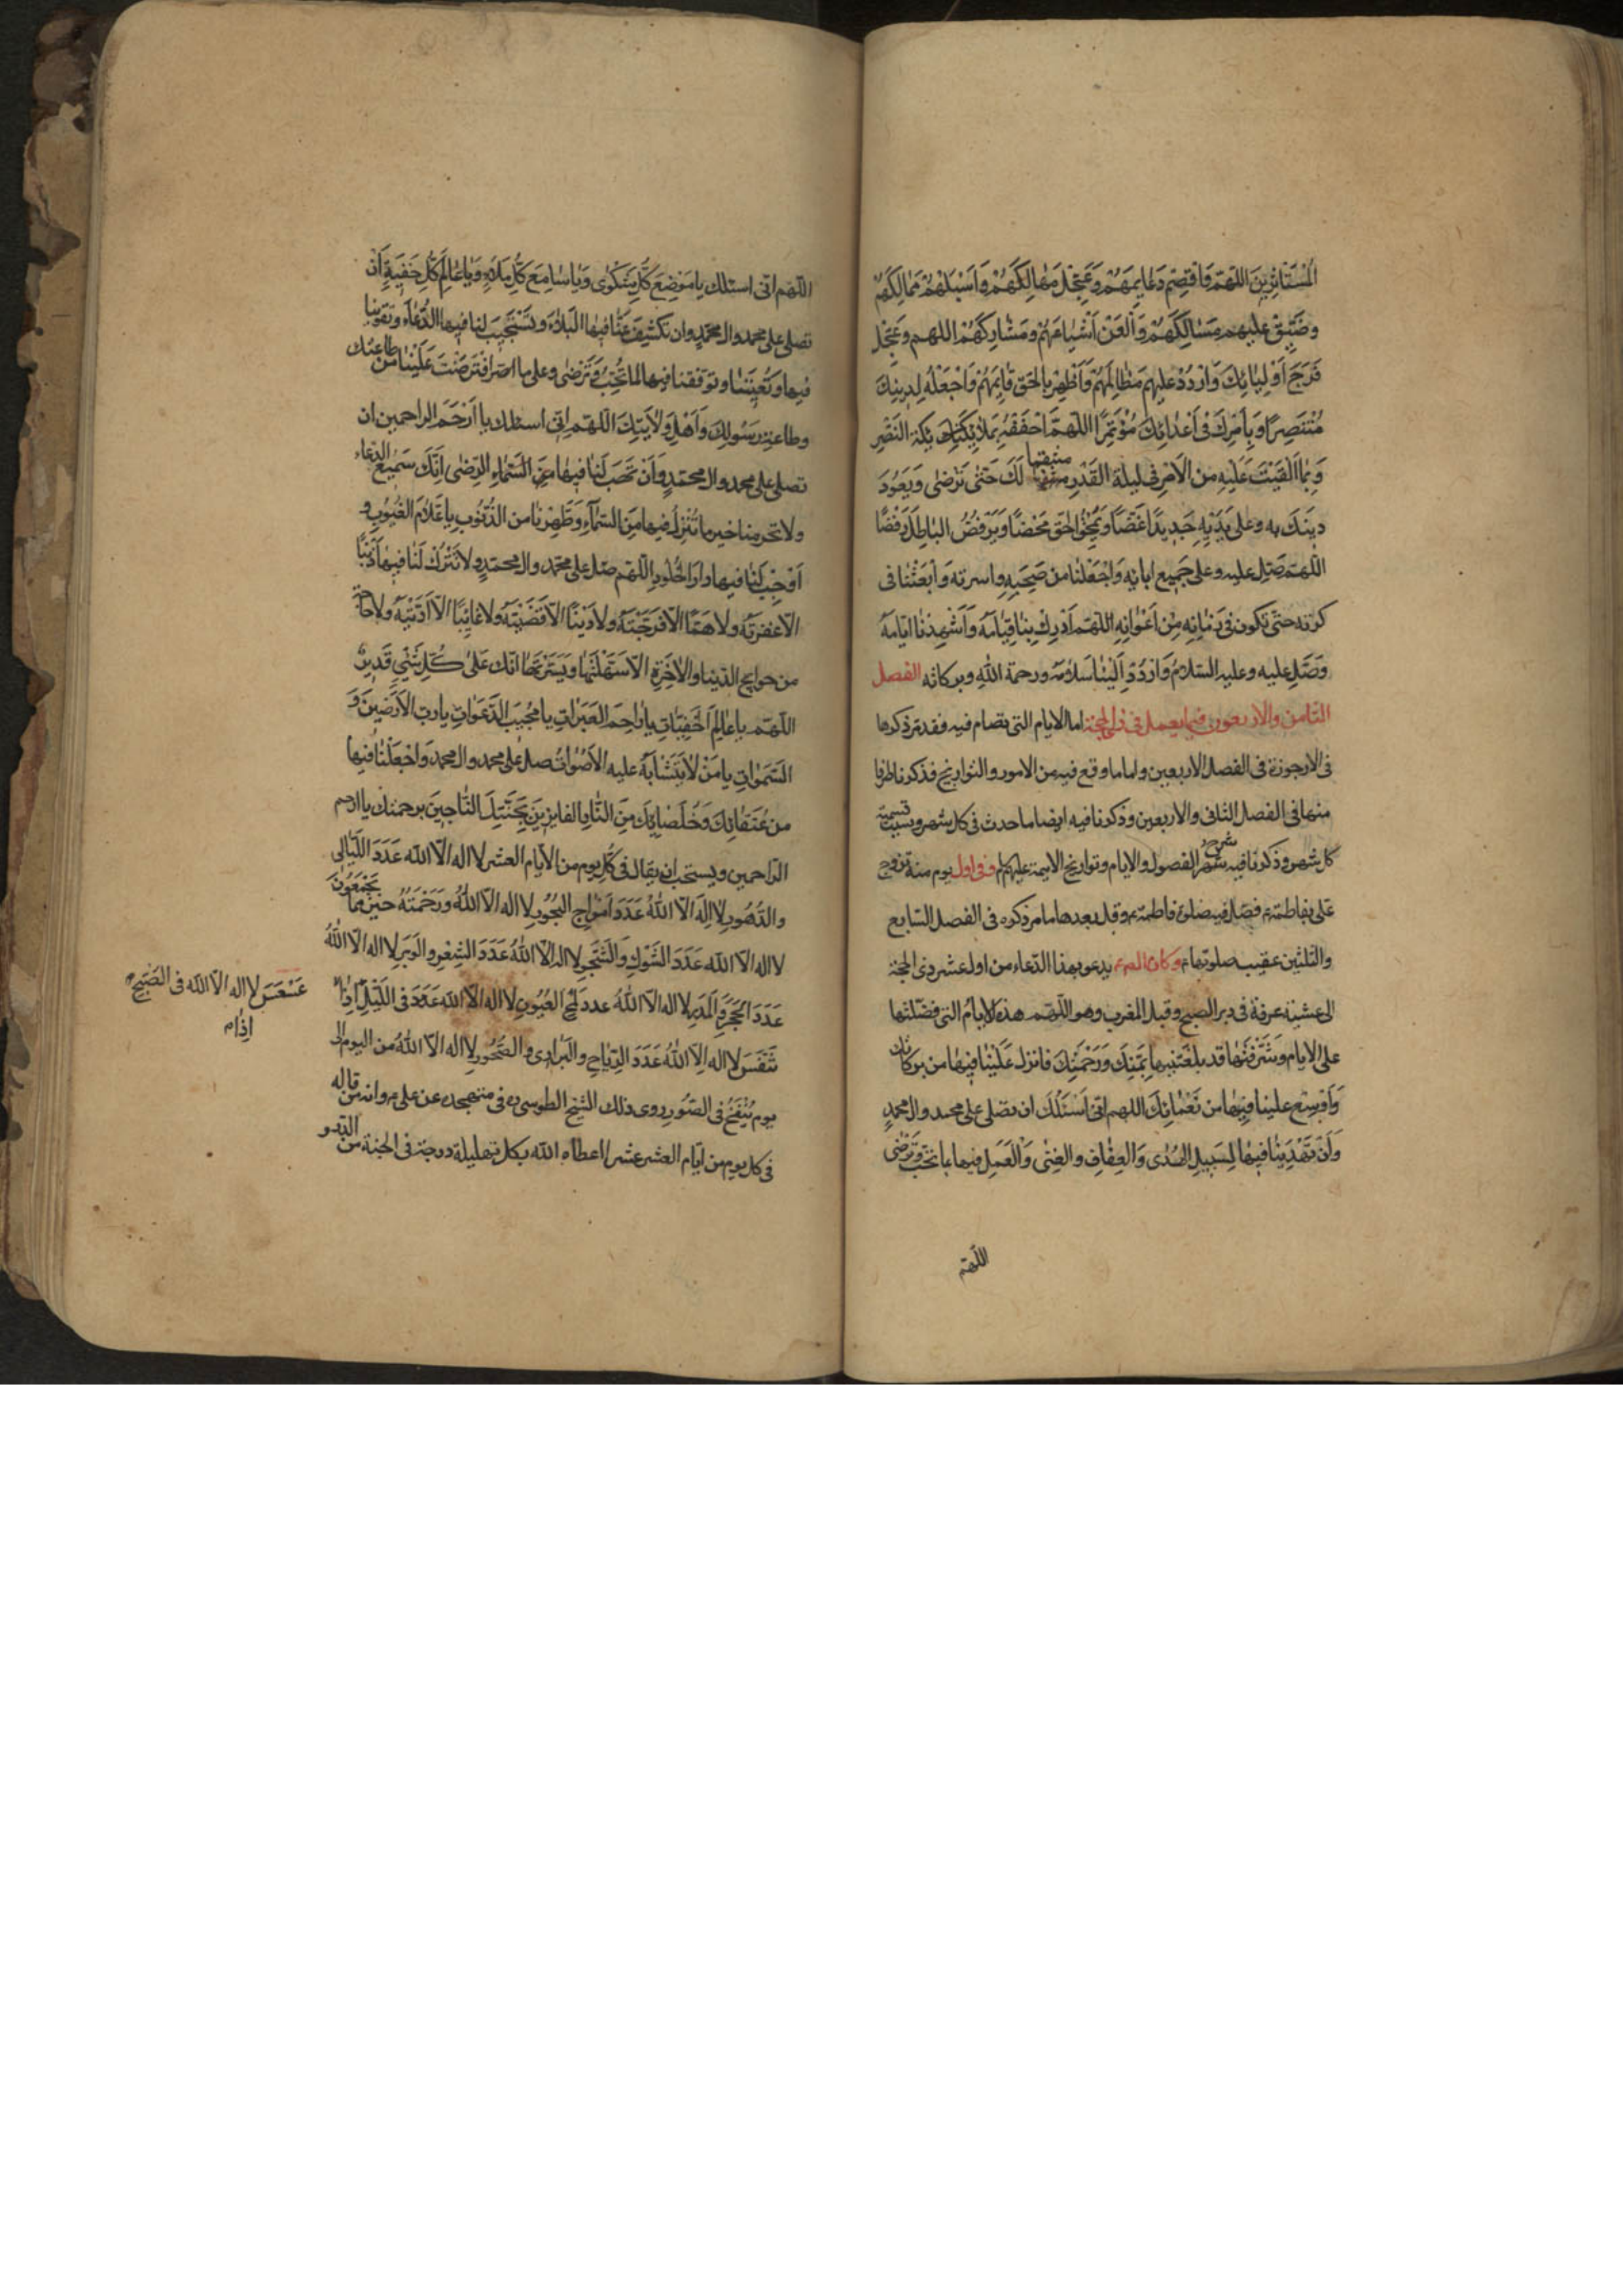 الْمُسْتَأْثِرِينَ اللهُمّ وَاقصِمْ دَعَايِمَهُمْ وَعَجِّلْ مَهَالِكَهُمْ وَاسْلُبْهُمْ مَمَالِكَهُمْ
وضَيِّقْ عليهم مَسَالِكَهُمْ وَالْعَنْ أَشْيَاعَهُمْ ومَشَارِكَهُمْ اللهم وعَجِّل
فَرَجَ أَوْلِيَائِكَ وَارْدُدْ عليهم مَظَالِمَهُمْ وَأَظْهِرْ بِالحَق قَايِمَهُمْ وَاجْعَلْهُ لِدِينِكَ
مُنْتَصِرًا وَبِأَمْرِكَ فى أَعْدَائِكَ مُؤْتَمِرًا اللهُمَّ احْفُفْهُ بِمَلَائِكَتِكَ النَّصْرِ
وَبِمَا أَلْقَيْتَ عَلَيْهِ مِنَ الأَمْرِ فى ليلة القَدْرِ منتقما لَكَ حَتّى تَرْضى وَيَعُودَ
دينَكَ به وعلى يَدَيْهِ جَدِيدًا غَضًّا وَيَمْحَضَ الحَقَّ مَحْضًا وَيَرْفُضَ البَاطِلَ رَفْضًا
اللهُمّ صَلِّ عليه وعلى جَمِيعِ ابائِهِ وَاجْعَلْنَا من صَحْبِهِ واسرته وَابْعَثْنَا فى
كرته حَتّى نكون فى زَمَانِهِ مِنْ اَعْوَانِهِ اللهُمّ اَدْرِكْ بِنَا قِيَامَهُ وَأَشْهِدْنَا أَيَّامَهُ
وَصَلِّ عليه وعليه السّلَامُ وَارْدُدْ اِلَيْنَا سَلَامَهُ ورحمة اللهِ وبركاته الفصل
الثّامن والاربعون فيما يعمل فى ذى الحجّة اما الايام التى تصام فيه فقد مرّ ذكرها
فى الارجوزة فى الفصل الاربعين واما ما وقع فيه من الامور والتواريخ فذكرنا طرفا
منها فى الفصل الثانى والاربعين وذكرنا فيه ايضا ما حدث فى كل شهر وسبب تسمية
كل شهر وذكرنا فيه شرح الفصول والايام وتواريخ الايمة عليهم وفى اول يوم منه تزوج
على بفاطمة فصل فيه صلوة فاطمة وقل بعدها ما مر ذكره فى الفصل السّابع
والثلثين عقيب صلوتها وكان الص يدعو بهذا الدّعاء من اول عشر ذى الحجة
الى عشية عرفة فى دبر الصبح وقبل المغرب وهو اللهم هذه الايام التى فضّلتها
على الايام وشَرَّفْتَهَا قد بلغتنيها بِمَنِّكَ وَرَحْمَتِكَ فانزل عَلَيْنَا فيها من بركاتك
وَأَوْسِعْ علينا فِيهَا من نَعْمَائِكَ اللهم انى أَسْئَلُكَ ان تصلى على محمد وال محمدٍ
وَأَنْ تَهْدِيَنَا فيها لِسَبِيلِ الهُدى وَالعِفَافِ والغِنى وَالْعَمَلِ فيها بما تحب وَتَرْضى
اللهم
اللهم انى اسئلك يا مَوْضِعَ كُلِّ شَكْوى وَيَا سَامِعَ كُلِّ مَلَاءٍ وَيَا عَالِمَ كُلِّ خَفِيَّةٍ أَنْ
تصلى على محمد وال محمّدٍ وان تَكْشِفَ عَنَّا فيها البَلَاءَ وتَسْتَجِيبَ لنا فيها الدُّعَاءَ وتقوينا
فيها وَتُعِينَنَا وتوفقنا فيها لما تُحِبُّ وَتَرْضى وعلى ما افْتَرَضْتَ عَلَيْنَا من طاعتك
وطاعة رسولك وَأَهْلِ وِلَايَتِكَ اللهُم اِنّى اسئلك يا أَرْحَمَ الراحمين ان
تصلى على محمد وال محمّدٍ وَأَنْ تَهَبَ لَنَا فيها الرِّضى إِنَّكَ سَمِيعُ الدُّعاء
ولا تحرمنا خير ما تُنْزِلُ فيها مِنَ السّمَاءِ وَطَهِّرْنا من الذُّنُوبِ يا عَلّامَ الغُيُوبِ و
أَوْجِبْ لَنَا فيها دَارَ الخُلُودِ اللهُم صلّ على محمّد وال محمّدٍ ولا تَتْرُكْ لَنَا فيها ذَنْبًا
الّا غفرته ولا هَمًّا اِلّا فَرَّجْتَهُ ولا دَيْنًا الّا قَضَيْتَهُ ولا غَائِبًا الّا أَدَّيْتَهُ ولا حاجة
من حوايج الدّنيا والاخِرَةِ الّا سَهَّلْتَهَا وَيَسَّرْتَهَا انّك عَلَى كُلِّ شَيْءٍ قَدِيرٌ
اللهُم يا عَالِمَ الخَفِيّاتِ يا رَاحِمَ العَبَرَاتِ يا مُجِيبَ الدّعَوَاتِ يا ربّ الأَرَضِينَ وَ
السّمَوَاتِ يا مَنْ لَا يَتَشَابَهُ عليه الأَصْوَاتُ صلّ على محمد وال محمد وَاجْعَلْنَا فيها
من عُتَقَائِكَ وَطُلَقَائِكَ مِنَ النَّارِ الفايزِينَ بِجَنَّتِكَ النَّاجِينَ برحمتك يا ارحم
الرّاحمين ويستحب ان يقال فى كُلِّ يوم من الايّام العشر لا اله الّا الله عَدَدَ اللّيَالِى
والدُّهُورِ لا اِلَهَ الّا اللهُ عَدَدَ أَمْوَاجِ البُحُورِ لا اله الّا اللهُ ورَحْمَتُهُ خَيْرٌ مِمّا يَجْمَعُونَ
لا اله الّا الله عَدَدَ الشَّوْكِ وَالشَّجَرِ لا اله الّا اللهُ عَدَدَ الشَّعْرِ والوَبَرِ لا اله الّا اللهُ
عَدَدَ الحَجَرِ وَالمَدَرِ لا اله الّا اللهُ عدد لَمْحِ العُيُونِ لا اله الّا الله عَدَدَ فى اللَّيْلِ اِذَا
عَسْعَسَ لا اله الّا الله فى الصّبح
اِذَا
تَنَفَّسَ لا اله اِلّا اللهُ عَدَدَ الرِّيَاحِ والبَرَارِى و الصُّخُورِ لا اله الّا اللهُ من اليوم الى
يوم يُنْفَخُ فى الصّور روى ذلك الشّيخ الطوسى فى متهجده عن على وانه من قاله
فى كل يوم من ايّام العشر عشرا اعطاه الله بكل تهليلة درجة فى الجنة من الدّر و